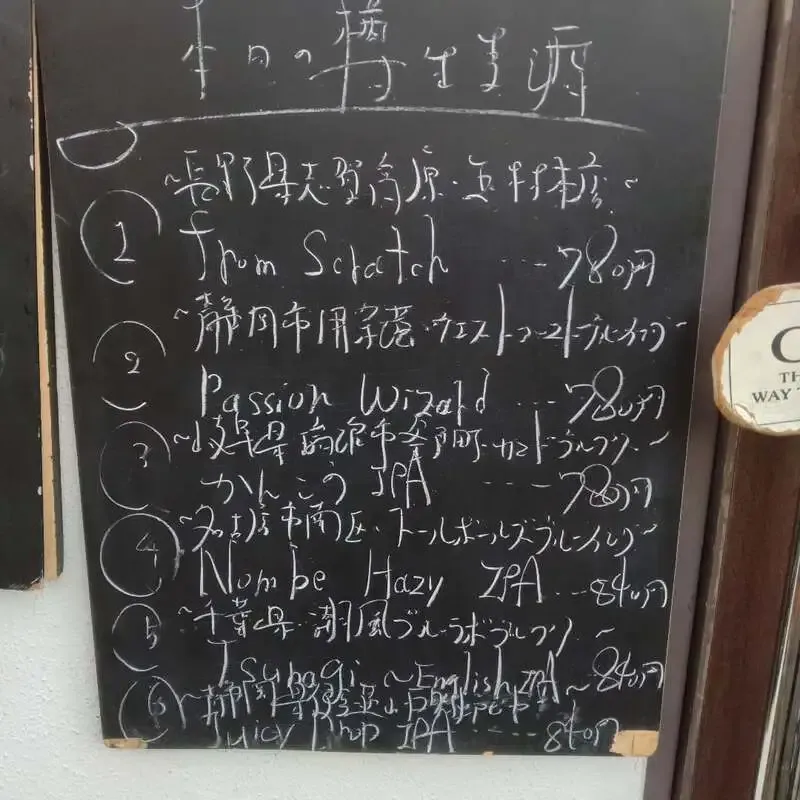 本日の樽生生酒
1
~長野県志賀高原・玉村本店~
From Scratch ... 780円
2
~静岡市用宗港・ウエストコーストブルーイング~
Passion Wizard ... 780円
3
~岐阜県高山市 カミトブルワリー~
かんこう IPA .... 780円
4
~名古屋市南区・トールボールズブルーイング~
Nombe Hazy IPA ... 840円
5
~千葉県・潮風ブルーラボブルワリー~
Tsunagi ~English IPA~ 840円
6
~静岡県
Juicy Drop IPA ..... 840円
C
TH
WAY